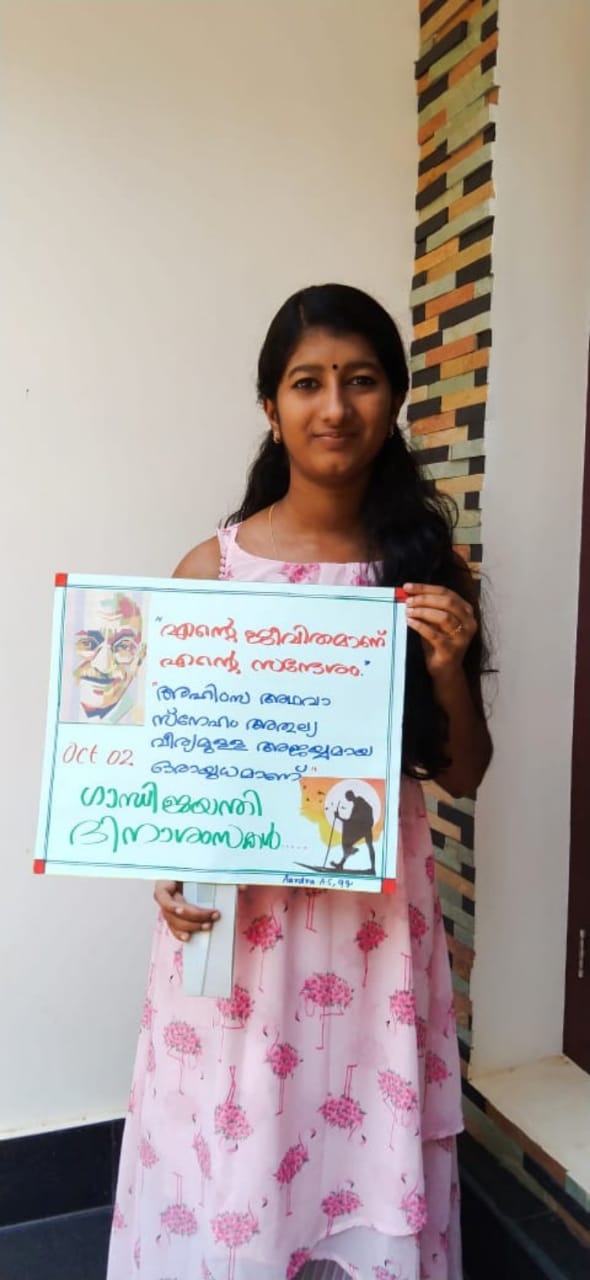 "എന്റെ ജീവിതമാണ്
എന്റെ സന്ദേശം."
"അഹിംസ അഥവാ
സ്നേഹം അതുല്യ
വീര്യമുള്ള അജയ്യമായ
ഒരായുധമാണ്"
Oct 02
ഗാന്ധിജയന്തി
ദിനാശംസകൾ.....